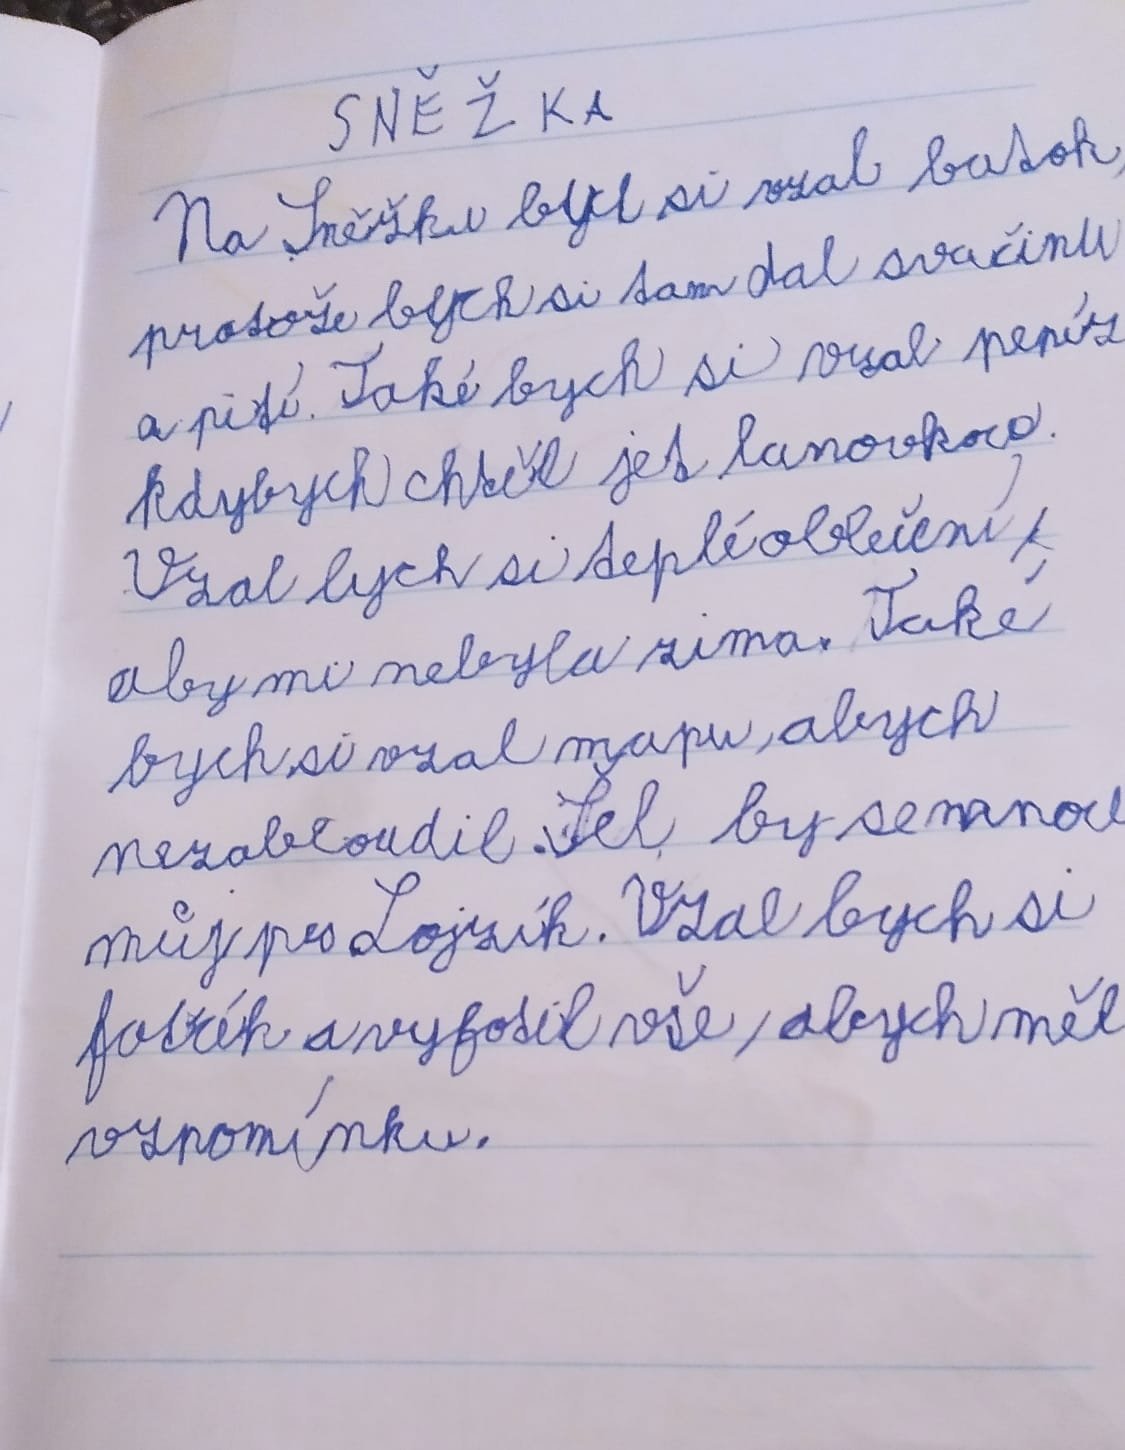 SNĚŽKA
Na Sněžku bych si vzal batoh,
protože bych si tam dal svačinu
a pití. Také bych si vzal peníz
kdybych chtěl jet lanovkou.
Vzal bych si teplé oblečení,
aby mi nebyla zima. Také
bych si vzal mapu, abych
nezabloudil. Šel by se mnou
můj pes Lojzík. Vzal bych si
foťák a vyfotil vše, abych měl
vzpomínku.